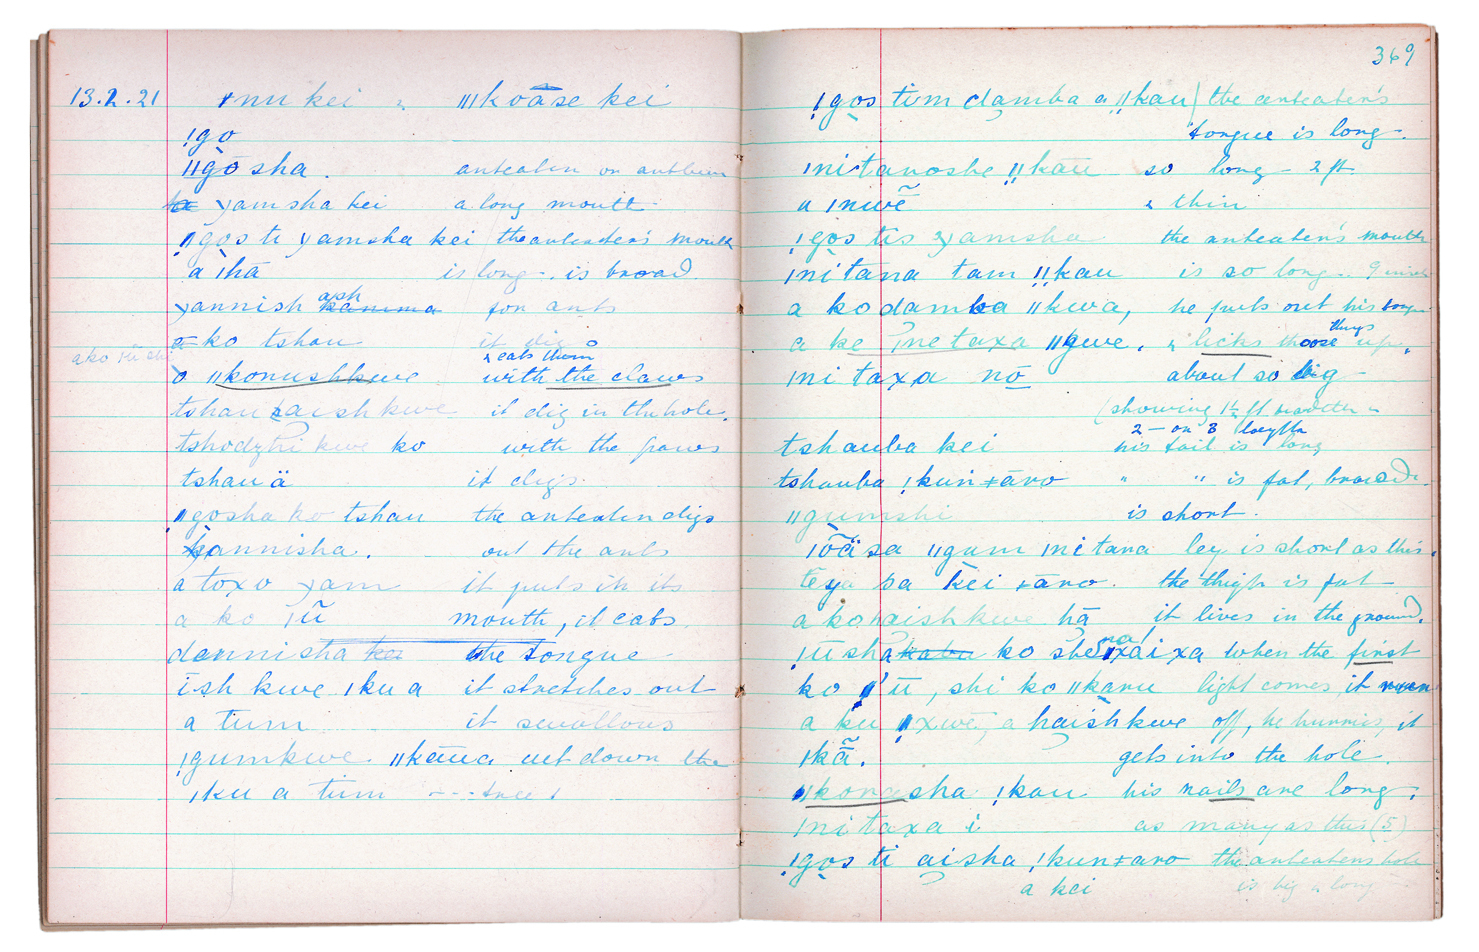 13.2.21 ǂnu kei ǀǀǀkoāse kei
!go
ǁgosha. anteater or antbear
ɣamsha kei a long mouth
ǁgos ti ɣamsha kei the anteater's mouth
a ǃhā is long - is broad
ɣannish ash for ants
a ko tshau it dig
& eats them
o ǁkonushkwe with the claws
tshau ǀaishkwe it dig in the hole.
tshodzhi kwe ko with the paws
tshau ä it digs
ǁgosha ko tshau the anteater digs
ɣannisha. out the ants
a toxo ɣam it puts in its
a ko ǀũ mouth, it eats.
dannisha the tongue
ish kwe ǀku a it stretches out
a tum it swallows
ǃgumkwe ǁkāua cut down the
ǀku a tum --- tree!
369
ǃgos tim damba a ǁkau the anteater's
tongue is long -
ǀnitanoshe ǁkau so long - 2 ft
a ǀnwẽ & thin
ǃgos tis ɣamsha the anteater's mouth
ǀnitana tam ǁkau is so long - 9 inch
a ko damba ǁkwa, he puts out his
a ke ǀnetaxa ǁgwe. & licks those things up,
ǀni taxa nō about so big -
(showing 1½ ft
2 - or 3 length
tshauba kei his tail is long
tshauba ǃkunǂāro " " is fat, broad.
ǁgumshi is short.
ǀõäsa ǁgum ǀnitana leg is short as this.
teya sa kei ǂāro. the thigh is fat
a ko haishkwe hā it lives in the ground.
ǀũsha ko she ǀxāixa when the first
ko ǀũ, shi ko ǁkaru light comes, it
a ku ǁxwē, a haishkwe off, he hurries, it
ǀkã. gets into the hole.
ǁkonasha ǃkau his nails are long,
ǀnitaxa i as many as this (5)
ǃgos ti aisha ǃkunǂaro the anteaters hole
a kei is big & long